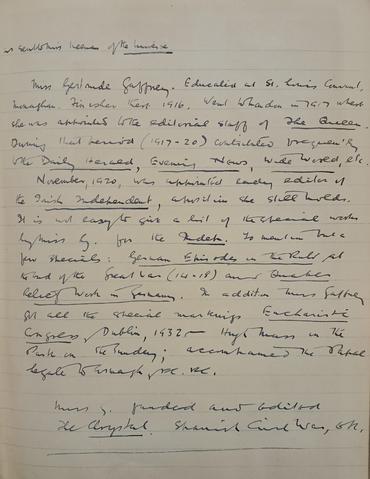 of the Universe
Miss Gertrude Gaffney. Educated at St. Louis Convent,
Monaghan. 1916. Went to London in 1917 where
she was appointed to the editorial staff of The Queen.
During that period (1917-20) contributed frequently
to the Daily Herald, Evening News, Wide World, etc.
November, 1920, was appointed editor of
the Irish Independent, a position she still holds.
It is not easy to give a list of the special works
by Miss G. for the Indep. To mention but a
few specials: German Episodes in the Ruhr, at
end of the Great War (14-18) and Quaker
Relief Work in Germany. In addition Miss Gaffney
did all the special Eucharistic
Congress, Dublin, 1932 — High Mass in the
Park on the Sunday; accompanied the Papal
Legate to Armagh, etc. etc.
Miss G. founded and edited
The Crystal. Spanish Civil War, etc.